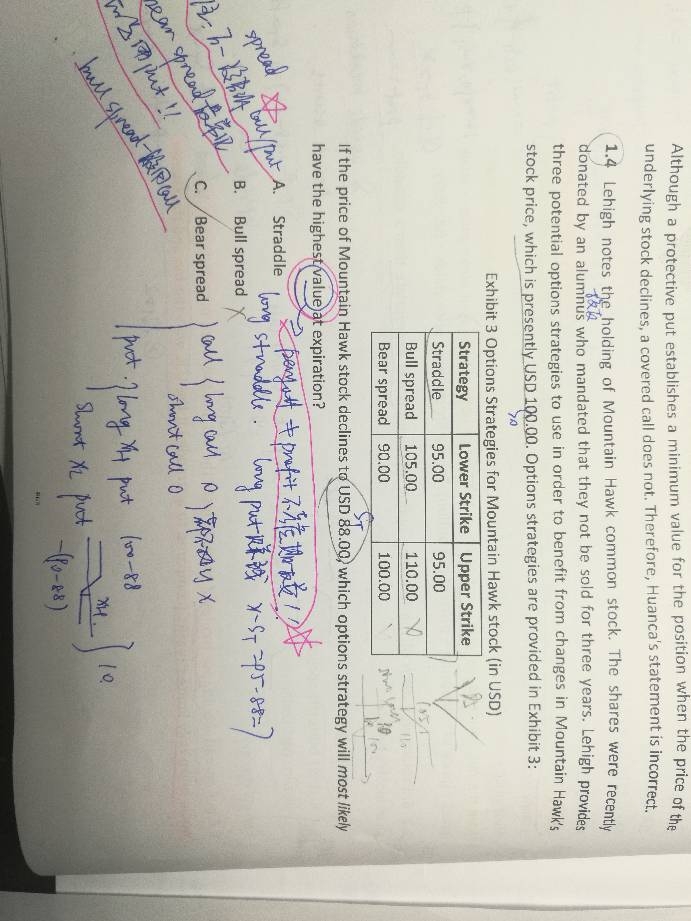 Although a protective put establishes a minimum value for the position when the price of the
underlying stock declines, a covered call does not. Therefore, Huanca's statement is incorrect.
1.4 Lehigh notes the holding of Mountain Hawk common stock. The shares were recently
donated by an alumnus who mandated that they not be sold for three years. Lehigh provides
three potential options strategies to use in order to benefit from changes in Mountain Hawk's
stock price, which is presently USD 100.00. Options strategies are provided in Exhibit 3:
S0
Exhibit 3 Options Strategies for Mountain Hawk stock (in USD)
Strategy Lower Strike Upper Strike
Straddle 95.00 95.00
Bull spread 105.00 110.00
Bear spread 90.00 100.00
ST
If the price of Mountain Hawk stock declines to USD 88.00, which options strategy will most likely
have the highest value at expiration?
payoff ≠ profit
A. Straddle
long straddle. long put X-ST=95-88=7
B. Bull spread X
C. Bear spread
call long call 0
short call 0
put. long XH put 100-88
short XL put -(90-88)
10
spread
call/put
bear spread
put!!
bull spread call